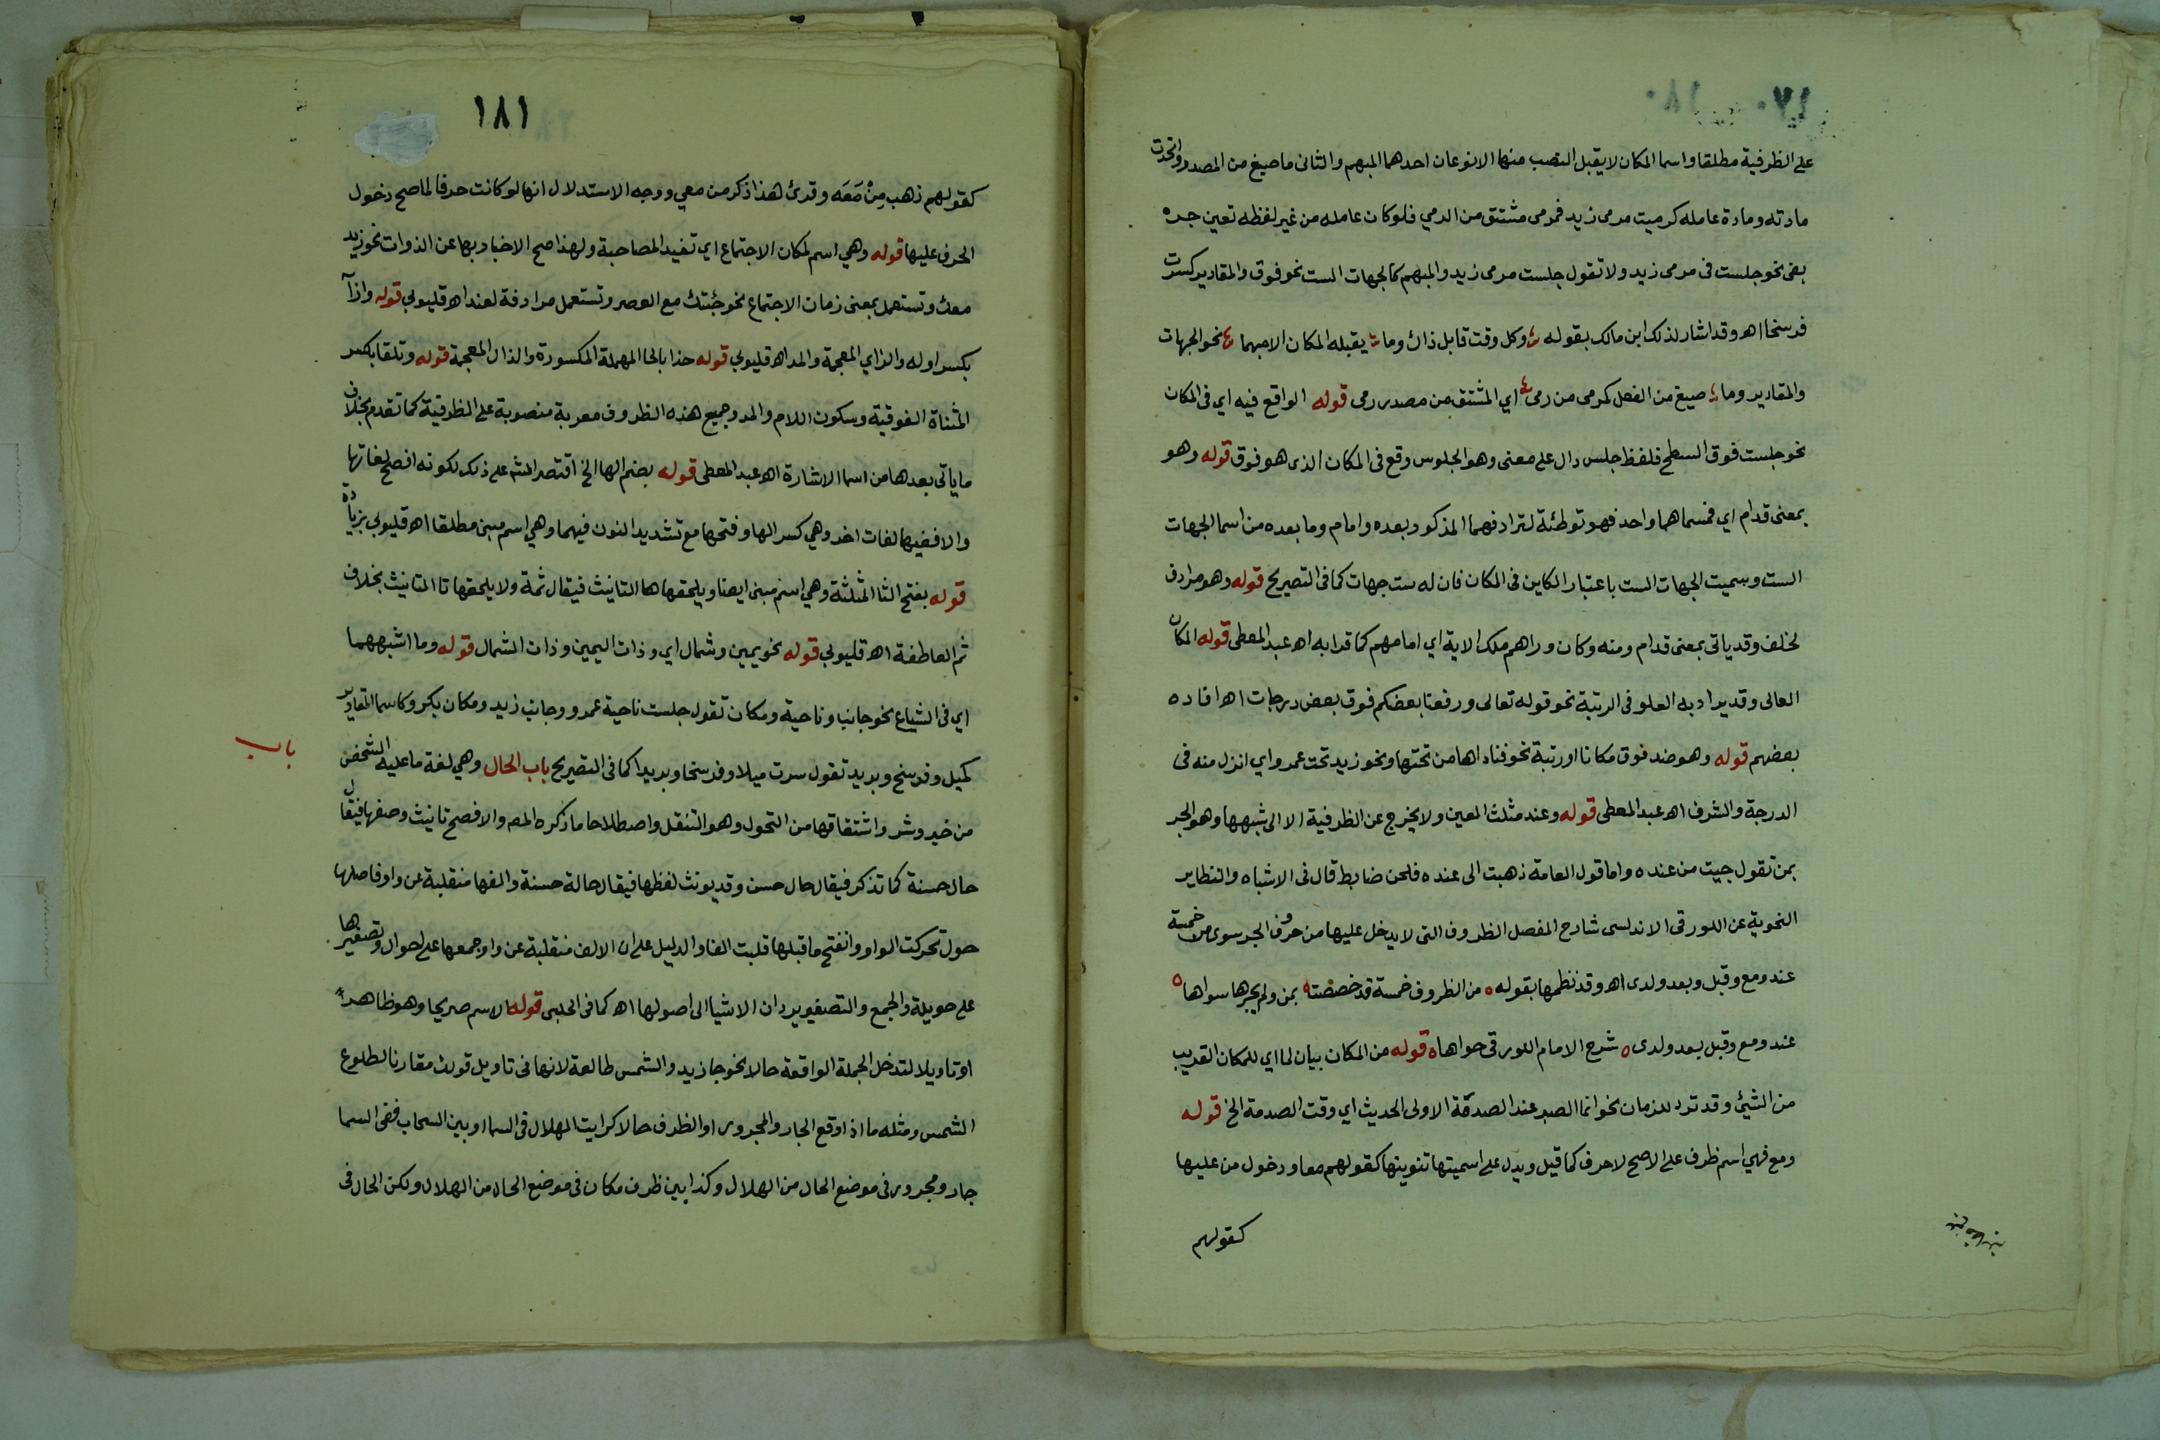 على الظرفية مطلقا واسما المكان لا يقبل النصب منها الا نوعان احدهما المبهم والثانى ما صيغ من المصدر واتحدت
مادته ومادة عامله كرميت مرمى زيد فمرمى مشتق من الرمي فلو كان عامله من غير لفظه تعين جره
بفى نحو جلست فى مرمى زيد ولا تقول جلست مرمى زيد والمبهم كالجهات الست نحو فوق والمقادير كسرت
فرسخا اهـ وقد اشار لذلك ابن مالك بقوله وكل وقت قابل ذاك وما يقبله المكان الا مبهما نحو الجهات
والمقادير وما صيغ من الفعل كرمى من رمى اي المشتق من مصدر رمى قوله الواقع فيه اي فى المكان
نحو جلست فوق السطح فلفظ جلس دال على معنى وهو الجلوس وقع فى المكان الذى هو فوق قوله وهو
بمعنى قدام اي فمسماهما واحد فهو توطئة لترادفهما المذكور بعده وامام وما بعده من اسما الجهات
الست وسميت الجهات الست باعتبار الكاين فى المكان فان له ست جهات كما فى التصريح قوله وهو مرادف
لخلف وقد ياتى بمعنى قدام ومنه وكان وراهم ملك الاية اي امامهم كما قرا به اهـ عبد المعطى قوله المكان
العالى وقد يراد به العلو فى الرتبة نحو قوله تعالى ورفعنا بعضكم فوق بعض درجات اهـ افاده
بعضهم قوله وهو ضد فوق مكانا او رتبة نحو فناداها من تحتها ونحو زيد تحت عمرو اي انزل منه فى
الدرجة والشرف اهـ عبد المعطى قوله وعند مثلث العين ولا يخرج عن الظرفية الا الى شبهها وهو الجر
بمن تقول جيت من عنده واما قول العامة ذهبت الى عنده فلحن ضابط قال فى الاشباه والنظاير
النحوية عن اللورقى الاندلسى شارح المفصل الظروف التى لا يدخل عليها من حروف الجر سوى من خمسة
عند ومع وقبل وبعد ولدى اهـ وقد نظمها بقوله ه من الظروف خمسة قد خصصت ه بمن ولم يجرها سواها ه
عند ومع وقبل بعد ولدى ه شرح الامام اللورقى حواها ه قوله من المكان بيان لما اي للمكان القريب
من الشئ وقد ترد للزمان نحو انما الصبر عند الصدمة الاولى الحديث اي وقت الصدمة الخ قوله
ومع فهي اسم ظرف على الاصح لا حرف كما قيل ويدل على اسميتها تنوينها كقولهم معا ودخول من عليها
كقولهم
١٨١
كقولهم ذهب مِنْ مَعَه وقرئ هذا ذكر من معي ووجه الاستدلال انها لو كانت حرفا لما صح دخول
الحرف عليها قوله وهي اسم لمكان الاجتماع اي تفيد المصاحبة ولهذا صح الاخبار بها عن الذوات نحو زيد
معك وتستعمل بمعنى زمان الاجتماع نحو جئتك مع العصر وتستعمل مرادفة لعند اهـ قليوبي قوله وازآ
بكسر اوله والزاي المعجمة والمد اهـ قليوبي قوله حذا بالحا المهملة المكسورة والذال المعجمة قوله وتلقا بكسر
المثناة الفوقية وسكون اللام والمد وجميع هذه الظروف معربة منصوبة على الظرفية كما تقدم بخلاف
ما ياتى بعدها من اسما الاشارة اهـ عبد المعطى قوله بضم الها الخ اقتصر الشـ على ذلك لكونه افصح لغاتها
والا ففيها لغات اخر وهي كسر الها وفتحها مع تشديد النون فيهما وهي اسم مبنى مطلقا اهـ قليوبي بزيادة
قوله بفتح الثا المثلثة وهي اسم مبنى ايضا ويلحقها ها التانيث فيقال ثمة ولا يلحقها تا التانيث بخلاف
ثم العاطفة اهـ قليوبي قوله نحو يمين وشمال اي وذات اليمين وذات الشمال قوله وما اشبههما
اي فى الشياع نحو جانب وناحية ومكان تقول جلست ناحية عمرو وجانب زيد ومكان بكر وكاسما المقادير
كميل وفرسخ وبريد تقول سرت ميلا وفرسخا وبريدا كما فى التصريح باب الحال وهي لغة ما عليه الشخص
باب
من خير وشر واشتقاقها من التحول وهو التنقل واصطلاحا ما ذكره المص والافصح تانيث وصفها فيقال
حال حسنة كما تذكر فيقال حال حسن وقد يونث لفظها فيقال حالة حسنة والفها منقلبة عن واو فاصلها
حول تحركت الواو وانفتح ما قبلها قلبت الفا والدليل على ان الالف منقلبة عن واو جمعها على احوال وتصغيرها
على حويلة والجمع والتصغير يردان الاشيا الى اصولها اهـ كما فى الحلبى قوله الاسم صريحا وهو ظاهر
او تاويلا لتدخل الجملة الواقعة حالا نحو جا زيد والشمس طالعة لانها فى تاويل قولك مقارنا لطلوع
الشمس ومثله ما اذا وقع الجار والمجرور او الظرف حالا كرايت الهلال فى السما او بين السحاب ففى السما
جار ومجرور فى موضع الحال من الهلال وكذا بين ظرف مكان فى موضع الحال من الهلال ولكن الحال فى